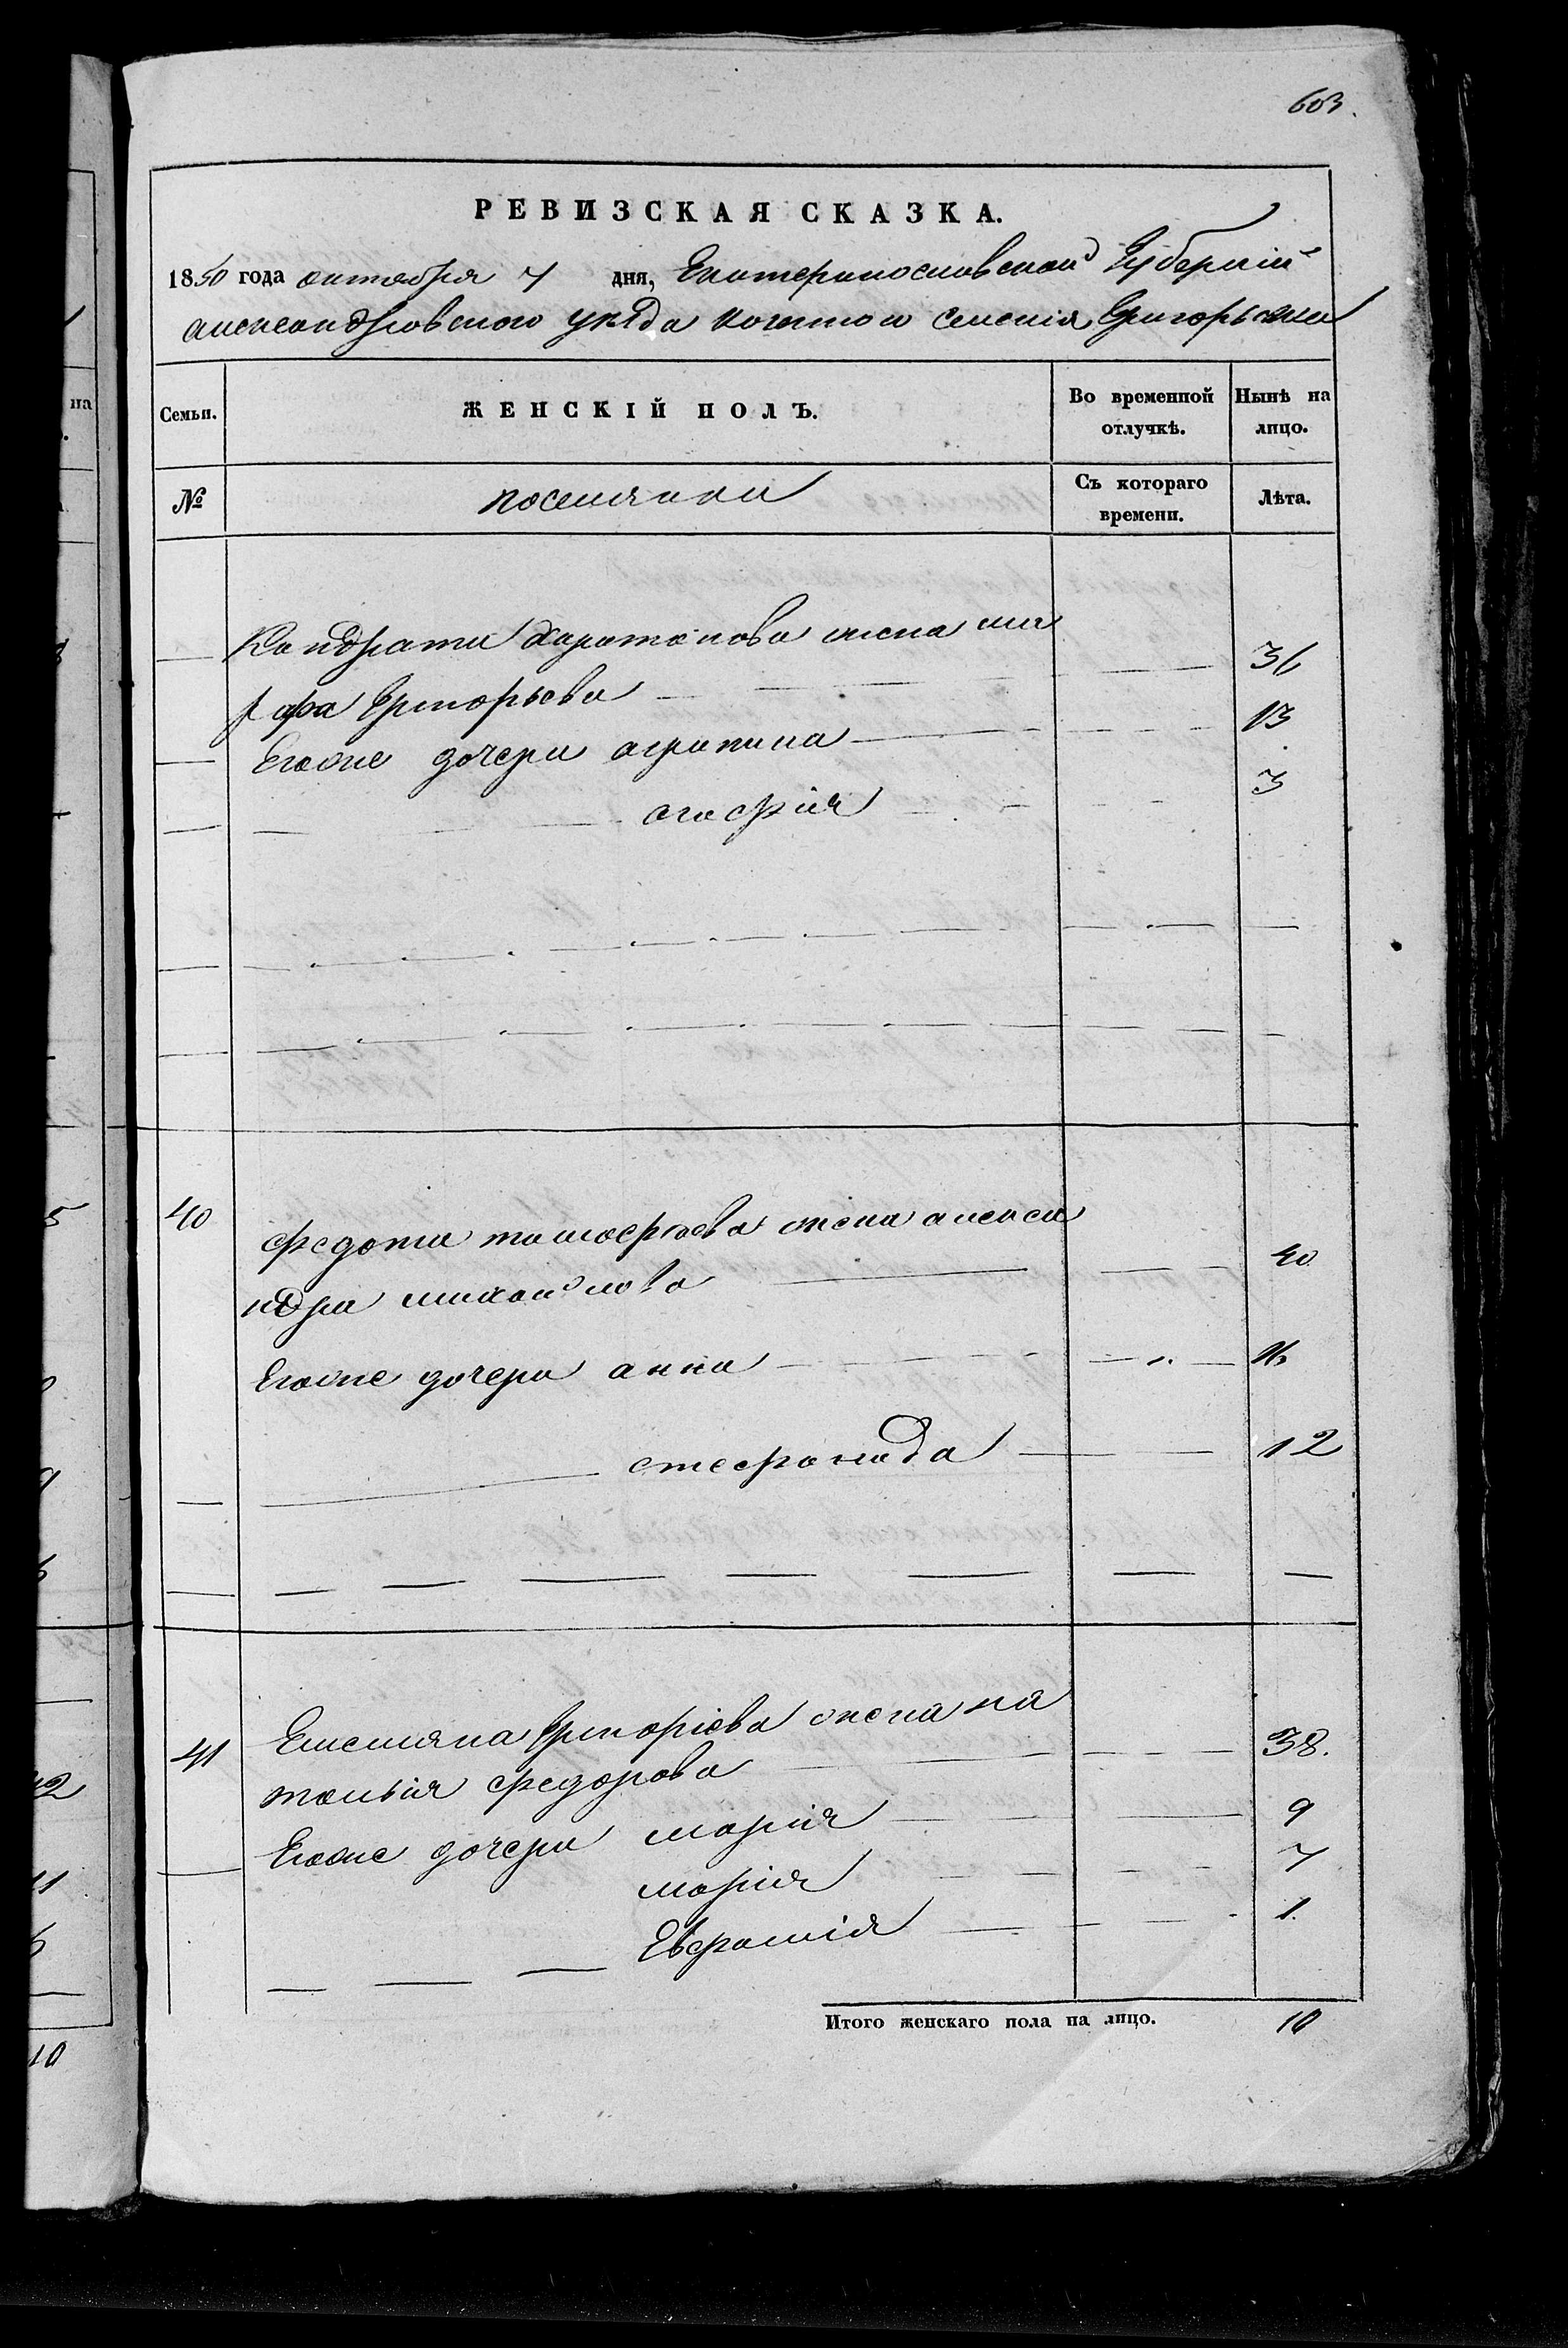 603.
РЕВИЗСКАЯ СКАЗКА.
1850 года октября 7 дня, Екатеринославской Губернии
александровского уезда казенного селения Григорьевки
Семьи.
ЖЕНСКІЙ ПОЛЪ.
Во временной отлучкѣ.
Нынѣ на лицо.
№
поселянки
Съ котораго времени.
Лѣта.
Кондрата Харитонова жена ма
рфа Григорьева 36
Егоже дочери агрипина 13
агафия 3
40 федота тимофеева жена алекса
ндра михайлова 40
Егоже дочери анна 16
стефанида 12
41 Емельяна Григориева жена на
талия федорова 38.
Егоже дочери мария 9
мария 7
Ефросиния 1.
Итого женскаго пола на лицо. 10